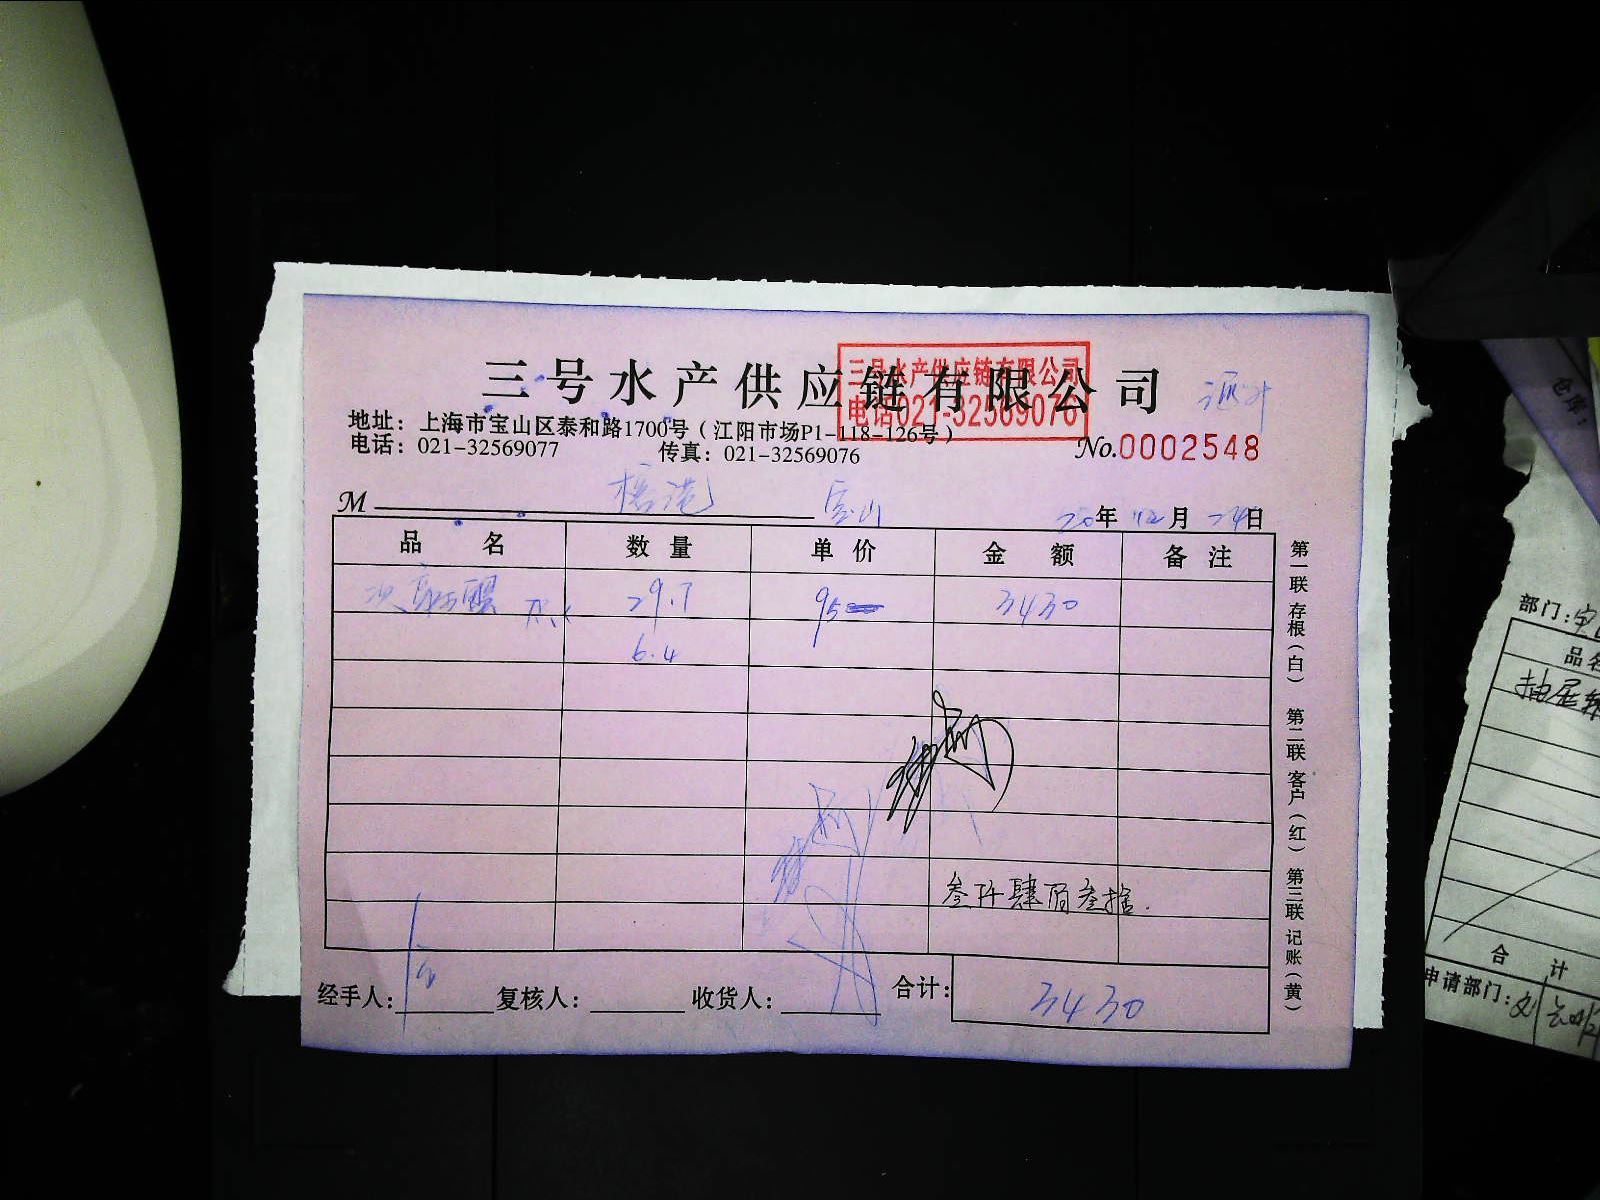 三号水产供应链有限公司
三号水产供应链有限公司
电话021-32569076
地址：上海市宝山区泰和路1700号（江阳市场P1-118-126号）
电话：021-32569077 传真：021-32569076
No.0002548
M 宝山 20年12月24日
品名 数量 单价 金额 备注
29.7 95 3430
6.4
叁仟肆佰叁拾.
经手人： 复核人： 收货人： 合计：3430
第一联 存根（白） 第二联 客户（红） 第三联 记账（黄）
仓库：
部门：
品名
合计
申请部门：